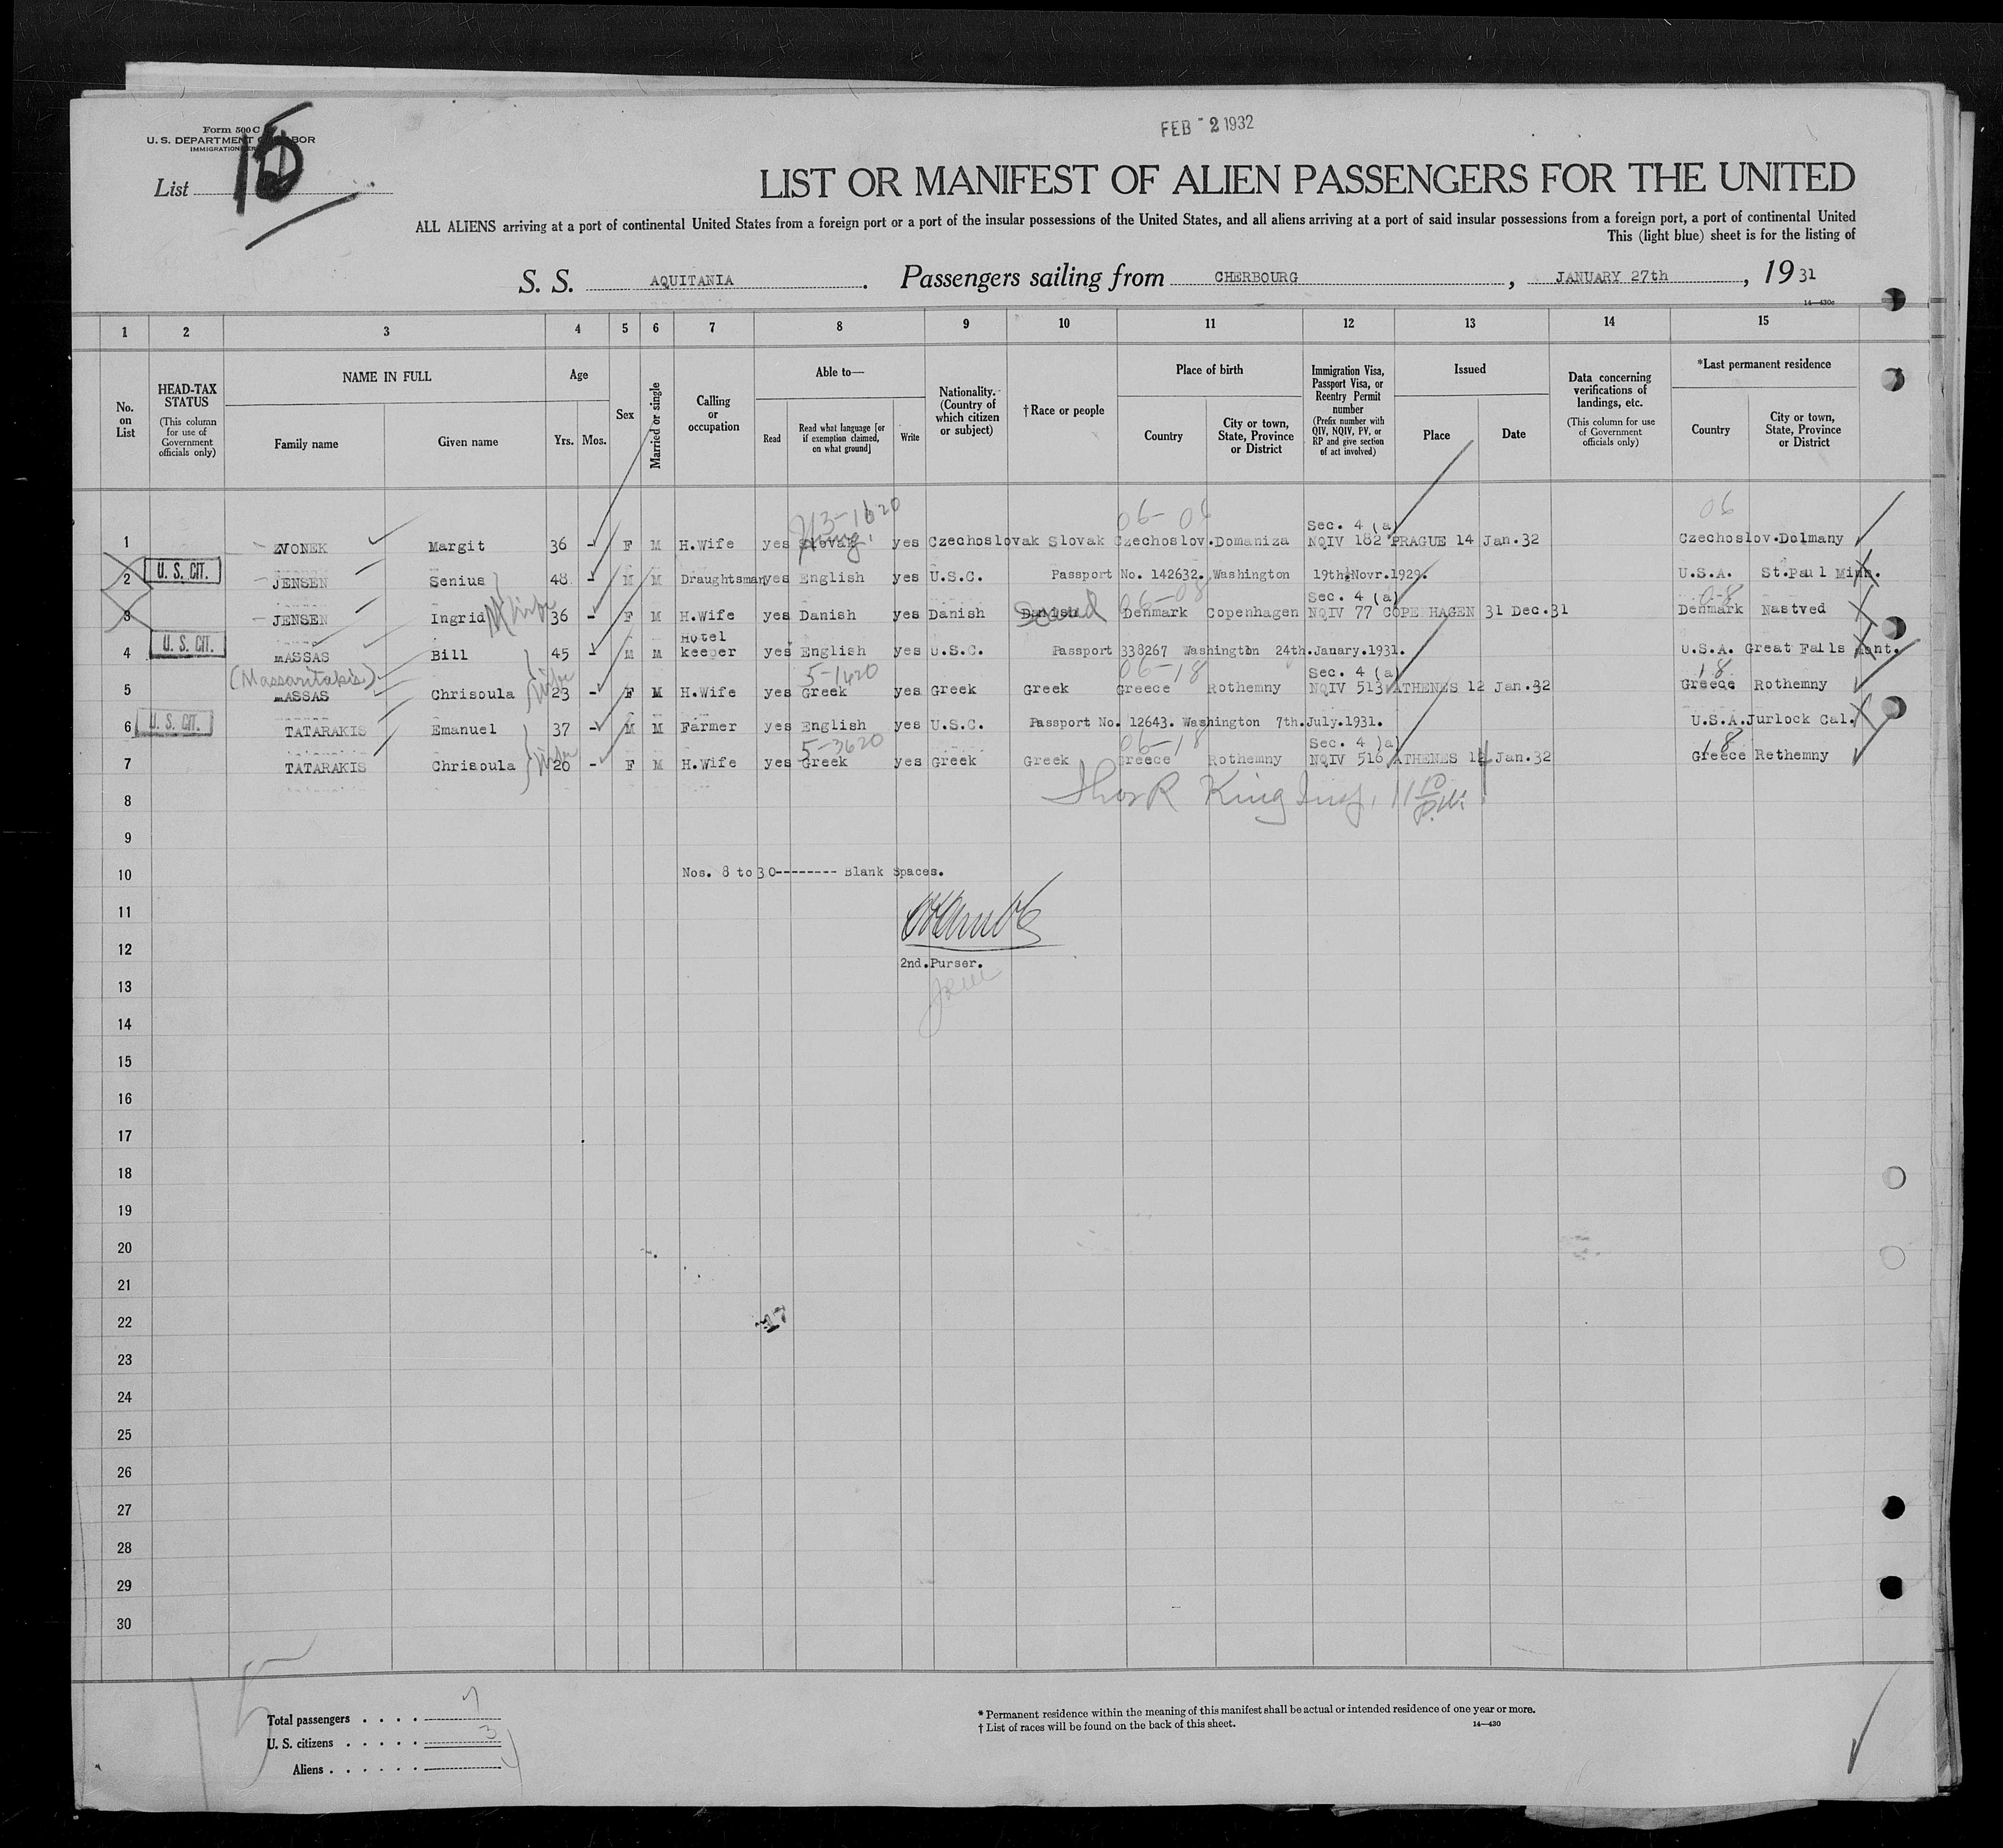 FEB - 2 1932
Form 500 C
U. S. DEPARTMENT OF LABOR
IMMIGRATION
List 15
LIST OR MANIFEST OF ALIEN PASSENGERS FOR THE UNITED
ALL ALIENS arriving at a port of continental United States from a foreign port or a port of the insular possessions of the United States, and all aliens arriving at a port of said insular possessions from a foreign port, a port of continental United
This (light blue) sheet is for the listing of
S. S. AQUITANIA. Passengers sailing from CHERBOURG, JANUARY 27th, 19 31
14—430c
1 2 3 4 5 6 7 8 9 10 11 12 13 14 15
No. on List
HEAD-TAX STATUS (This column for use of Government officials only)
NAME IN FULL
Family name
Given name
Age
Yrs. Mos.
Sex
Married or single
Calling or occupation
Able to—
Read
Read what language [or if exemption claimed, on what ground]
Write
Nationality. (Country of which citizen or subject)
†Race or people
Place of birth
Country
City or town, State, Province or District
Immigration Visa, Passport Visa, or Reentry Permit number (Prefix number with QIV, NQIV, PV, or RP and give section of act involved)
Issued
Place
Date
Data concerning verifications of landings, etc. (This column for use of Government officials only)
*Last permanent residence
Country
City or town, State, Province or District
06-06 Sec. 4 (a) 06
1 ZVONEK Margit 36 - F M H.Wife yes Slovak yes Czechoslovak Slovak Czechoslov. Domaniza NQIV 182 PRAGUE 14 Jan.32 Czechoslov. Dolmany
2 U. S. CIT. JENSEN Senius 48 - M M Draughtsman yes English yes U.S.C. Passport No. 142632. Washington 19th.Novr.1929. U.S.A. St.Paul Minn.
06-08 Sec. 4 (a) 08
3 JENSEN Ingrid wife 36 - F M H.Wife yes Danish yes Danish Danish Scand Denmark Copenhagen NQIV 77 COPENHAGEN 31 Dec.31 Denmark Nastved
4 U. S. CIT. mASSAS Bill 45 - M M Hotel keeper yes English yes U.S.C. Passport 338267 Washington 24th.Jauary.1931. U.S.A. Great Falls Mont.
(Massaritakis) 5-1420 06-18 Sec. 4 (a) 18
5 mASSAS Chrisoula wife 23 - F M H.Wife yes Greek yes Greek Greek Greece Rothemny NQIV 513 ATHENES 12 Jan.32 Greece Rothemny
6 U. S. CIT. TATARAKIS Emanuel 37 - M M Farmer yes English yes U.S.C. Passport No. 12643. Washington 7th.July.1931. U.S.A. Jurlock Cal.
5-3620 06-18 Sec. 4 )a) 18
7 TATARAKIS Chrisoula wife 26 - F M H.Wife yes Greek yes Greek Greek Greece Rothemny NQIV 516 ATHENES 12 Jan.32 Greece Rethemny
8 Thos R King Insp.
9
10 Nos. 8 to 30-------- Blank Spaces.
11
12
2nd.Purser.
13
14
15
16
17
18
19
20
21
22
23
24
25
26
27
28
29
30
15
Total passengers . . . . 7
U. S. citizens . . . . . 3
Aliens . . . . . .
* Permanent residence within the meaning of this manifest shall be actual or intended residence of one year or more.
† List of races will be found on the back of this sheet.
14—430